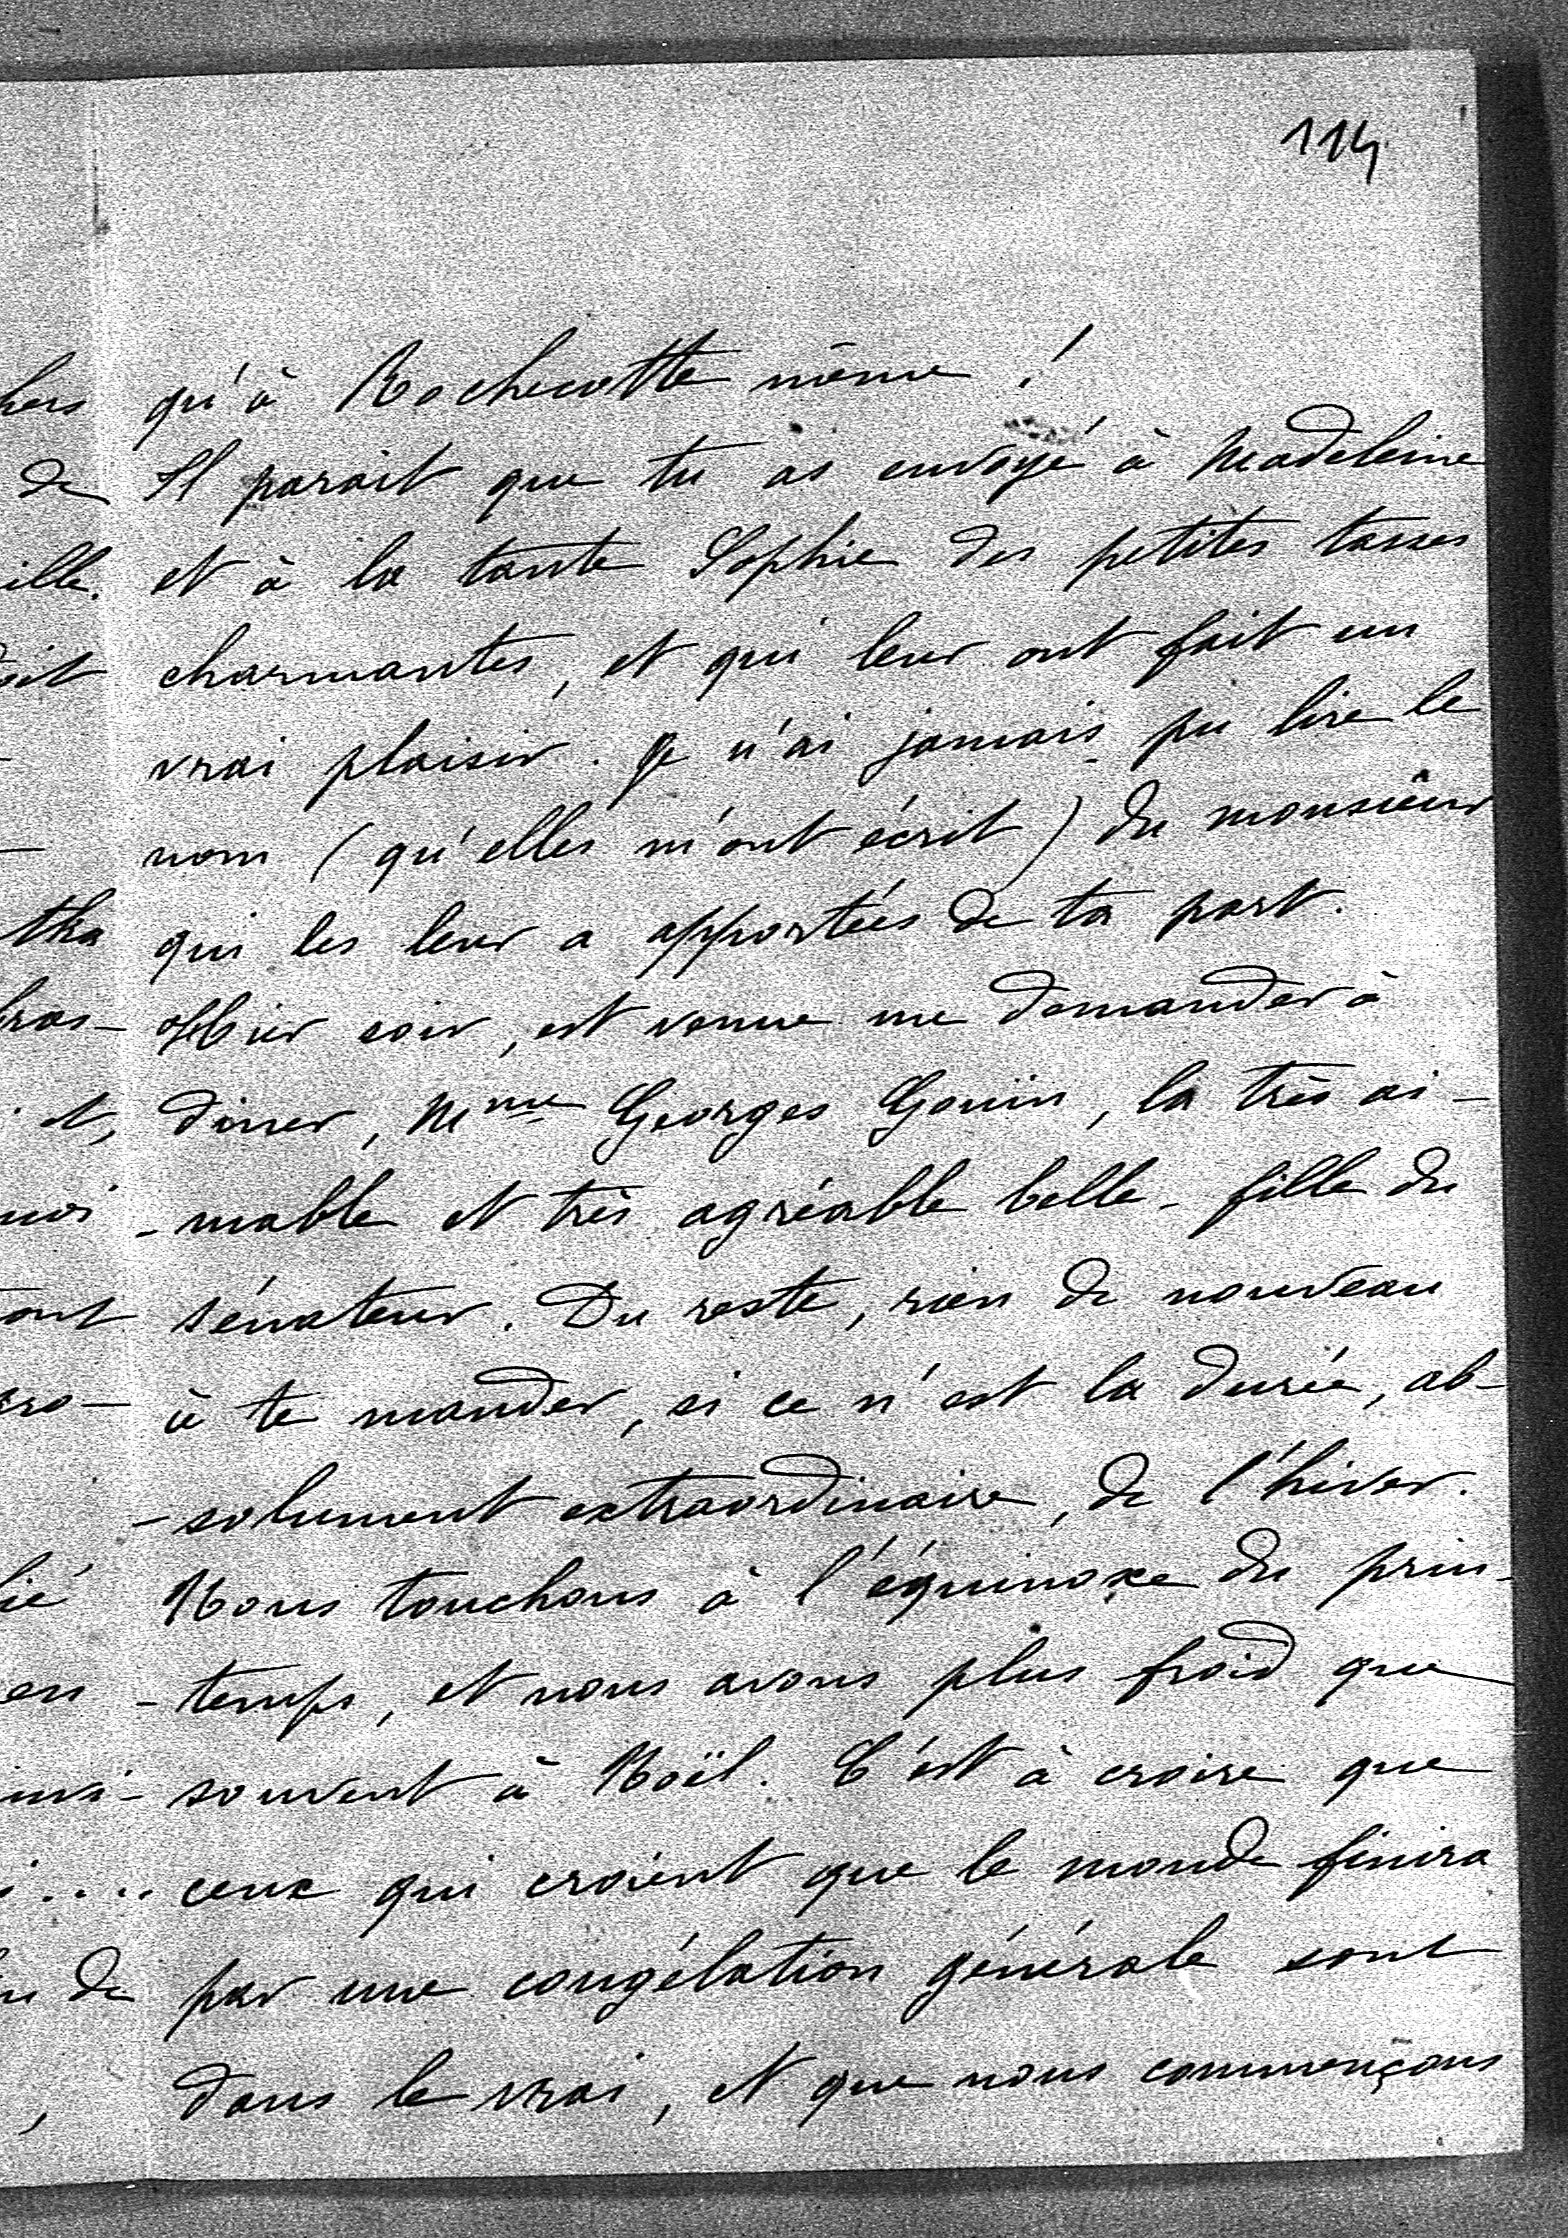 114
qu'à Rochecotte même !
Il parait que tu as envoyé à Madeleine
et à la tante Sophie des petites tasses
charmantes, et qui leur ont fait un
vrai plaisir. Je n'ai jamais pu lire le
nom (qu'elles m'ont écrit) du monsieur
qui les leur a apportées de ta part.
Hier soir, est venue me demander à
diner, Mme Georges Goüin, la très ai-
-mable et très agréable belle-fille du
sénateur. Du reste, rien de nouveau
à te mander, si ce n'est la durée, ab-
-solument extraordinaire, de l'hiver.
Nous touchons à l'équinoxe du prin-
-temps, et nous avons plus froid que
souvent à Noël. C'est à croire que
ceux qui croient que le monde finira
par une congélation générale sont
dans le vrai, et que nous commençons